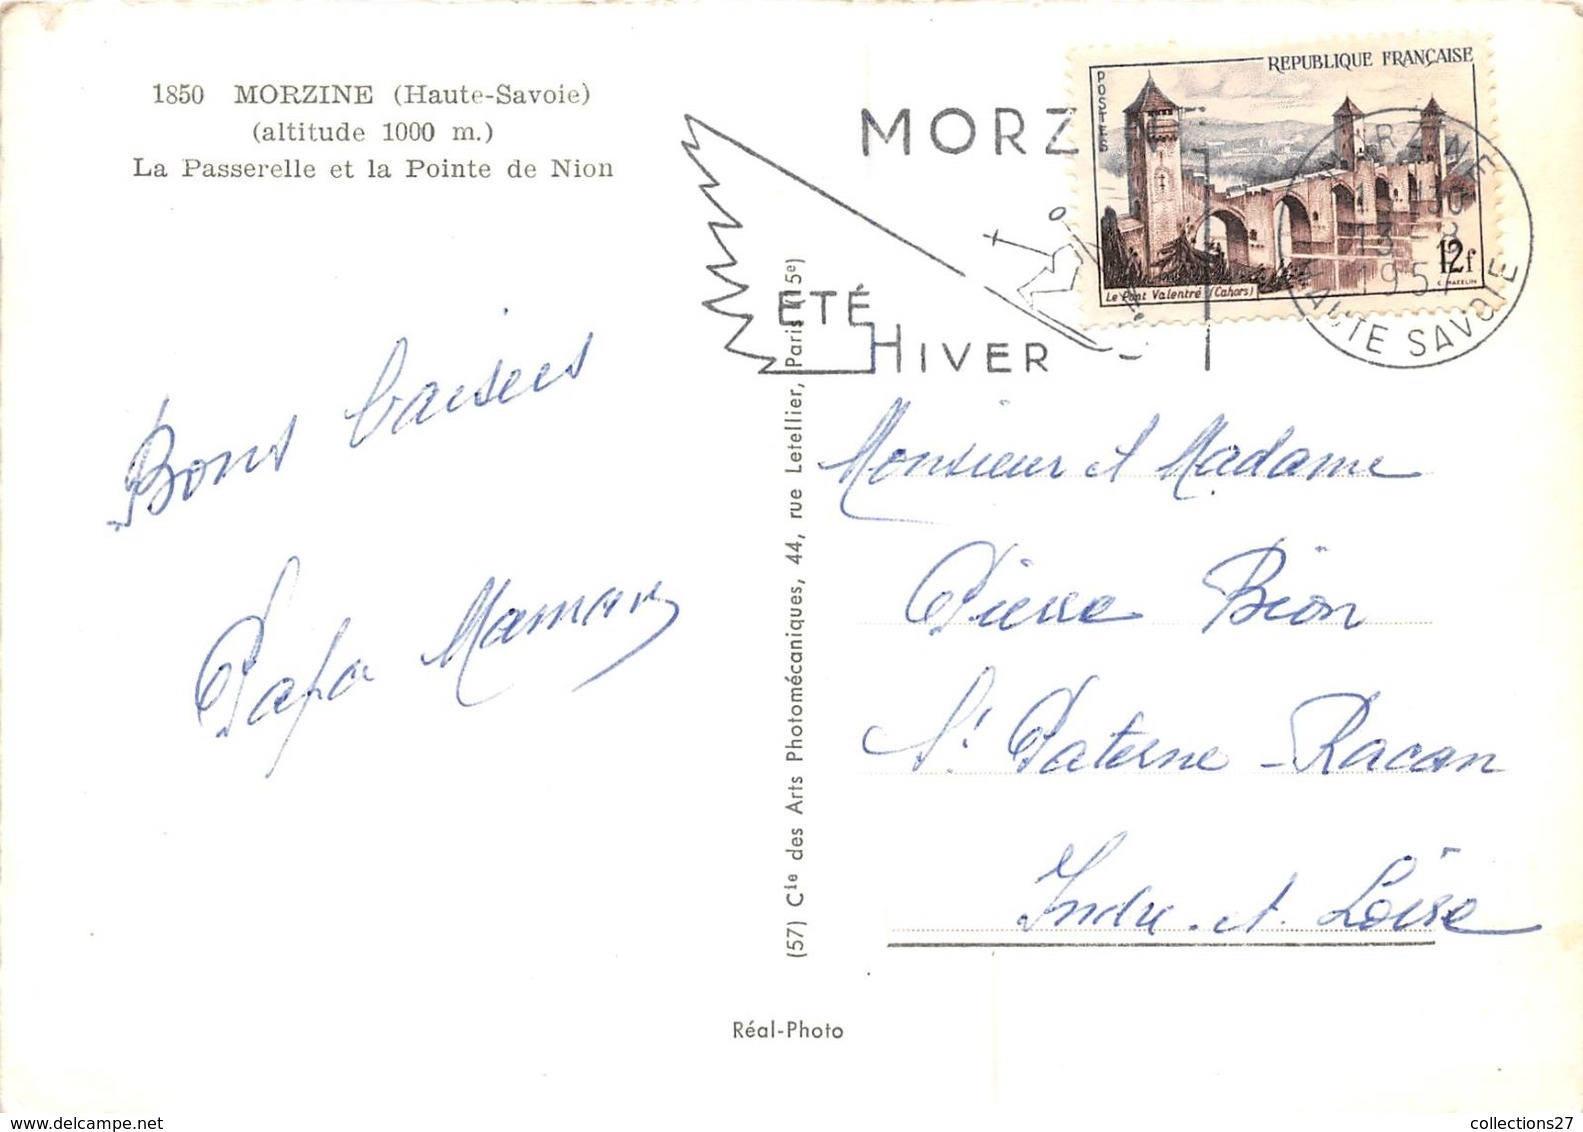 1850 MORZINE (Haute-Savoie)
(altitude 1000 m.)
La Passerelle et la Pointe de Nion
MORZ
ÉTÉ
HIVER
RÉPUBLIQUE FRANÇAISE
POSTES
12f
Le Pont Valentré (Cahors)
C. MAZELIN
MORZINE
30
13 - 8
1957
HAUTE SAVOIE
Bons baisers
Papa Maman
(57) Cie des Arts Photomécaniques, 44, rue Letellier, Paris (15e)
Monsieur et Madame
Pierre Bion
St Paterne - Racan
Indre. et. Loire
Réal-Photo
collections27